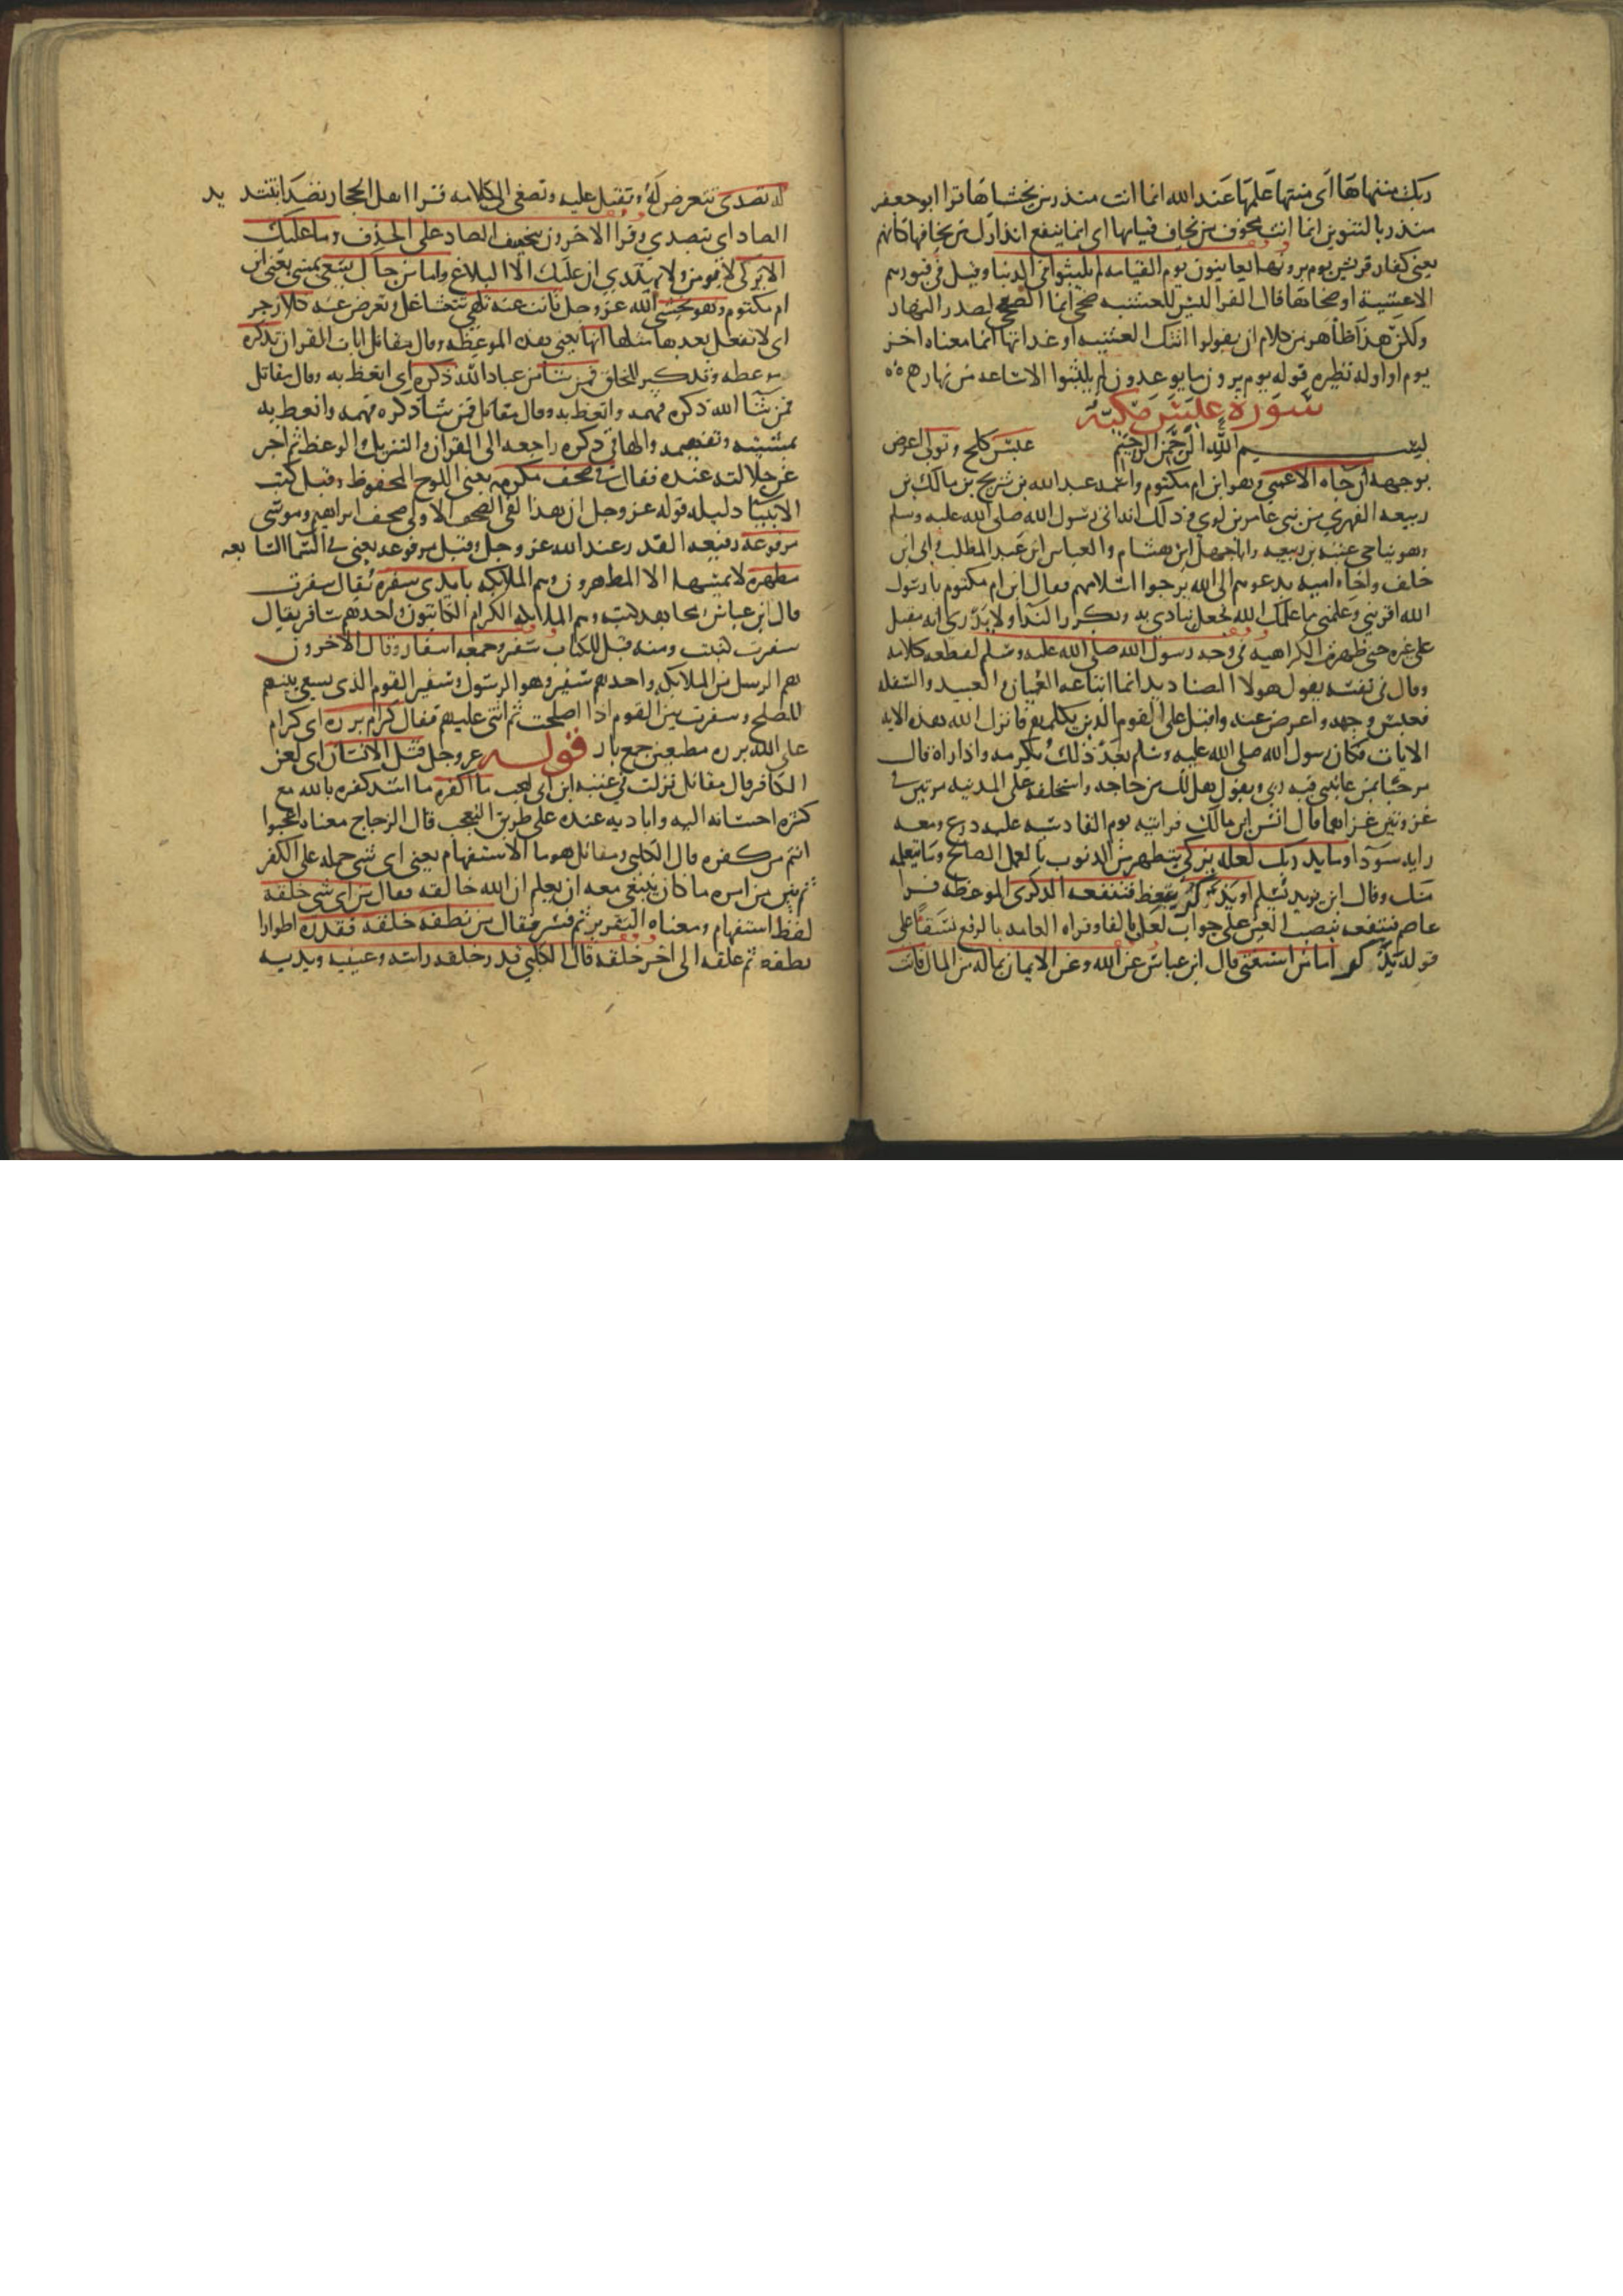 ربك منتهاها اى منتها علمها عند الله انما انت منذر من يخشاها قرا ابو جعفر
منذر بالتنوين انما انت مخوف من يخاف قيامها اى انما ينفع انذارك من يخافها كانهم
يعنى كفار قريش يوم يرونها يعاينون يوم القيامه لم يلبثوا فى الدنيا وقيل فى قبورهم
الا عشية او ضحاها قال الفرا ليس للعشيه ضحى انما الضحى لصدر النهار
ولكن هذا ظاهر من كلامهم ان يقولوا اتيك العشيه او غداتها انما معناه اخر
يوم او اوله نظيره قوله يوم يرون ما يوعدون لم يلبثوا الا ساعه من نهار
سورة عبس مكية
بسم الله الرحمن الرحيم عبس كلح وتولى اعرض
بوجهه ان جاه الاعمى وهو ابن ام مكتوم واسمه عبد الله بن شريح بن مالك بن
ربيعه الفهري من بنى عامر بن لوي وذلك انه اتى رسول الله صلى الله عليه وسلم
وهو يناجى عتبه بن ربيعه وابا جهل ابن هشام والعباس ابن عبد المطلب وابى ابن
خلف واخاه اميه يدعوهم الى الله يرجوا اسلامهم فقال ابن ام مكتوم يا رسول
الله اقرينى وعلمنى مما علمك الله فجعل يناديه ويكرر الندا ولا يدرى انه مقبل
على غيره حتى ظهرت الكراهيه فى وجه رسول الله صلى الله عليه وسلم لقطعه كلامه
وقال فى نفسه يقول هولا الصناديد انما اتباعه العميان والعبيد والسفله
فعبس وجهه واعرض عنه واقبل على القوم الذين يكلمهم فانزل الله هذه الايه
الايات فكان رسول الله صلى الله عليه وسلم بعد ذلك يكرمه واذا راه قال
مرحبا بمن عاتبنى فيه ربى ويقول هل لك من حاجه واستخلفه على المدينه مرتين فى
غزوتين غزاهما قال انس ابن مالك فرايته يوم القادسيه عليه درع ومعه
رايه سودا وما يدريك لعله يزكى يتطهر من الذنوب بالعمل الصالح وما يتعلمه
منك وقال ابن زيد يسلم او يذكر يتعظ فتنفعه الذكرى الموعظه قرا
عاصم فتنفعه بنصب العين على جواب لعل بالفا وقراه العامه بالرفع نسقا على
قوله يذكر اما من استغنى قال ابن عباس عن الله وعن الايمان بماله من المال فانت
له تصدى تتعرض له وتقبل عليه وتصغى الى كلامه قرا اهل الحجاز تصدى بتشديد
الصاد اى تتصدي وقرا الاخرون بتخفيف الصاد على الحذف وما عليك
الا يزكى لا يومن ولا يهتدي ان عليك الا البلاغ واما من جاك يسعى يمشى يعنى ابن
ام مكتوم وهو يخشى الله عز وجل فانت عنه تلهى تتشاغل وتعرض عنه كلا زجر
اى لا تفعل بعدها مثلها انها يعنى هذه الموعظه وقال مقاتل ايات القران تذكره
موعظه وتذكير للخلق فمن شا من عباد الله ذكره اى اتعظ به وقال مقاتل
فمن شا الله ذكره فهمه واتعظ به وقال مقاتل فمن شا ذكره فهمه واتعظ به
بمشيته وتفهيمه والها فى ذكره راجعه الى القران والتنزيل والوعظ ثم اخبر
عن جلالته عنده فقال فى صحف مكرمه يعنى اللوح المحفوظ وقيل كتب
الانبيا دليله قوله عز وجل ان هذا لفى الصحف الاولى صحف ابراهيم وموسى
مرفوعه رفيعه القدر عند الله عز وجل وقيل مرفوعه يعنى فى السما السابعه
مطهره لا يمسها الا المطهرون وهم الملايكه بايدى سفره يقال سفرت
قال ابن عباس ومجاهد كتبه وهم الملايكه الكرام الكاتبون واحدهم سافر يقال
سفرت كتبت ومنه قيل للكتاب سفر وجمعه اسفار وقال الاخرون
هم الرسل من الملايكه واحدهم سفير وهو الرسول وسفير القوم الذى يسعى بينهم
للصلح وسفرت بين القوم اذا اصلحت ثم اثنى عليهم فقال كرام برره اى كرام
على الله برره مطيعين جمع بار قوله عز وجل قتل الانسان اى لعن
الكافر قال مقاتل نزلت فى عتبه ابن ابى لهب ما اكفره ما اشد كفره بالله مع
كثره احسانه اليه واياديه عنده على طريق التعجب قال الزجاج معناه اعجبوا
انتم من كفره قال الكلبى ومقاتل هو ما الاستفهام يعنى اى شى حمله على الكفر
ثم بين من امره ما كان ينبغى معه ان يعلم ان الله خالقه فقال من اى شى خلقه
لفظ استفهام ومعناه التقرير ثم فسر فقال من نطفه خلقه فقدره اطوارا
نطفه ثم علقه الى اخر خلقه قال الكلبى قدر خلقه راسه وعينيه ويديه